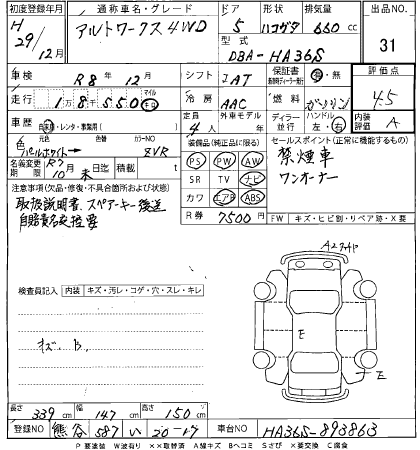 初度登録年月 通称車名・グレード ドア 形状 排気量 出品NO.
H 29/12月 アルトワークス4WD 5 ハコガタ 660cc 31
型式 DBA-HA36S
車検 R8年12月 シフト IAT 保証書 有・無 評価点
走行 18550 マイル km 冷房 AAC 燃料 ガソリン 4.5
車歴 自家用・レンタ・事業用( ) 定員 4人 外車モデル ディーラー 並行 ハンドル 左・右 内装評価 A
色 元色 パールホワイト カラーNO ZVR
装備品(純正品に限る) セールスポイント(正常に機能するもの)
PS PW AW 禁煙車
名義変更期限 R7 10月末日迄 積載量 t SR TV ナビ ワンオーナー
注意事項(欠品・修復・不具合箇所および状態) カワ エアB ABS
取扱説明書、スペアーキー後送 R券 7500円 FW キズ・ヒビ割・リペア跡・X要
自賠責名変控要
A2 ﾀﾃｷﾞﾚ
検査員記入 内装 キズ・汚レ・コゲ・穴・スレ・キレ
E
キズ. B.
E
長さ 339cm 幅 147cm 高さ 150cm
登録NO 熊谷 587 い 20-17 車台NO HA36S-893863
P要塗装 W波有り ××取替済 A線キズ Bヘコミ Sさび ×要交換 C腐食